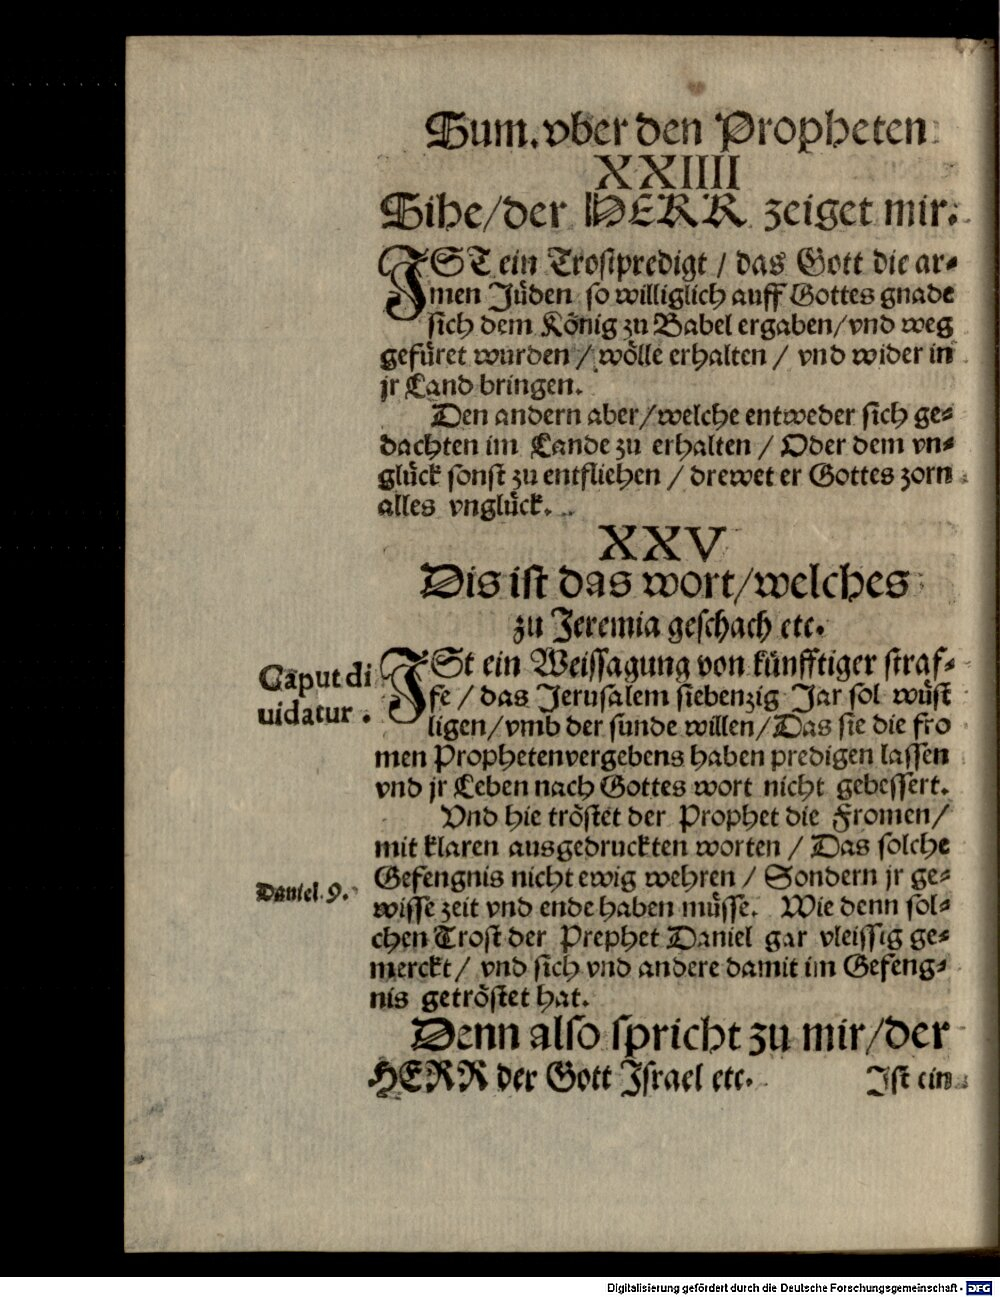 Sum. vber den Propheten
XXIIII
Sihe/der HERR zeiget mir.
IST ein Trostpredigt / das Gott die ar⸗
men Jüden so williglich auff Gottes gnade
sich dem König zu Babel ergaben/vnd weg
gefüret wurden / wölle erhalten / vnd wider in
jr Land bringen.
Den andern aber/welche entweder sich ge⸗
dachten im Lande zu erhalten / Oder dem vn⸗
glück sonst zu entfliehen / drewet er Gottes zorn
alles vnglück.
XXV
Dis ist das wort/welches
zu Jeremia geschach etc.
Caput di
uidatur.
ISt ein Weissagung von künfftiger straf⸗
fe / das Jerusalem siebenzig Jar sol wüst
ligen/vmb der sunde willen/Das sie die fro
men Prophetenvergebens haben predigen lassen
vnd jr Leben nach Gottes wort nicht gebessert.
Vnd hie tröstet der Prophet die Fromen/
mit klaren ausgedruckten worten / Das solche
Daniel. 9.
Gefengnis nicht ewig wehren / Sondern jr ge⸗
wisse zeit vnd ende haben müsse. Wie denn sol⸗
chen Trost der Prephet Daniel gar vleissig ge⸗
merckt / vnd sich vnd andere damit im Gefeng⸗
nis getröstet hat.
Denn also spricht zu mir/der
HERR der Gott Israel etc.
Ist ein
Digitalisierung gefördert durch die Deutsche Forschungsgemeinschaft - DFG